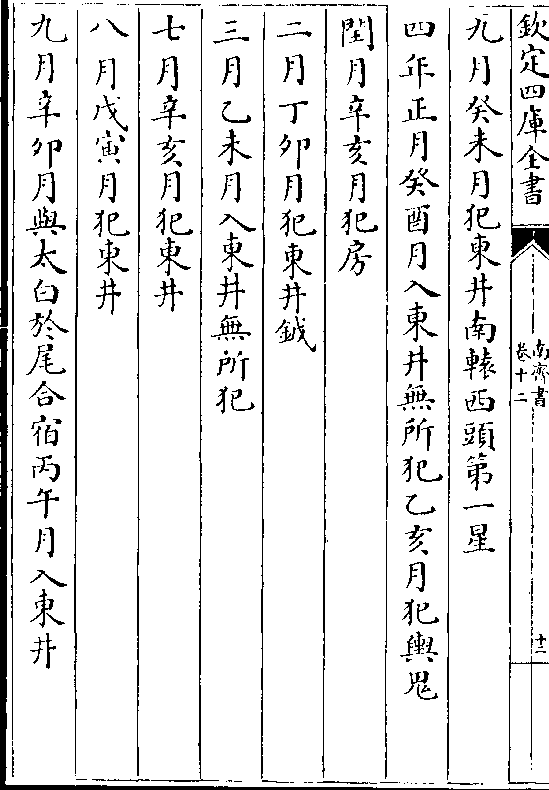 欽定四庫全書
南齊書
卷十二
十二
九月癸未月犯東井南轅西頭第一星
四年正月癸酉月入東井無所犯乙亥月犯輿鬼
閏月辛亥月犯房
二月丁卯月犯東井鉞
三月乙未月入東井無所犯
七月辛亥月犯東井
八月戊寅月犯東井
九月辛卯月與太白於尾合宿丙午月入東井